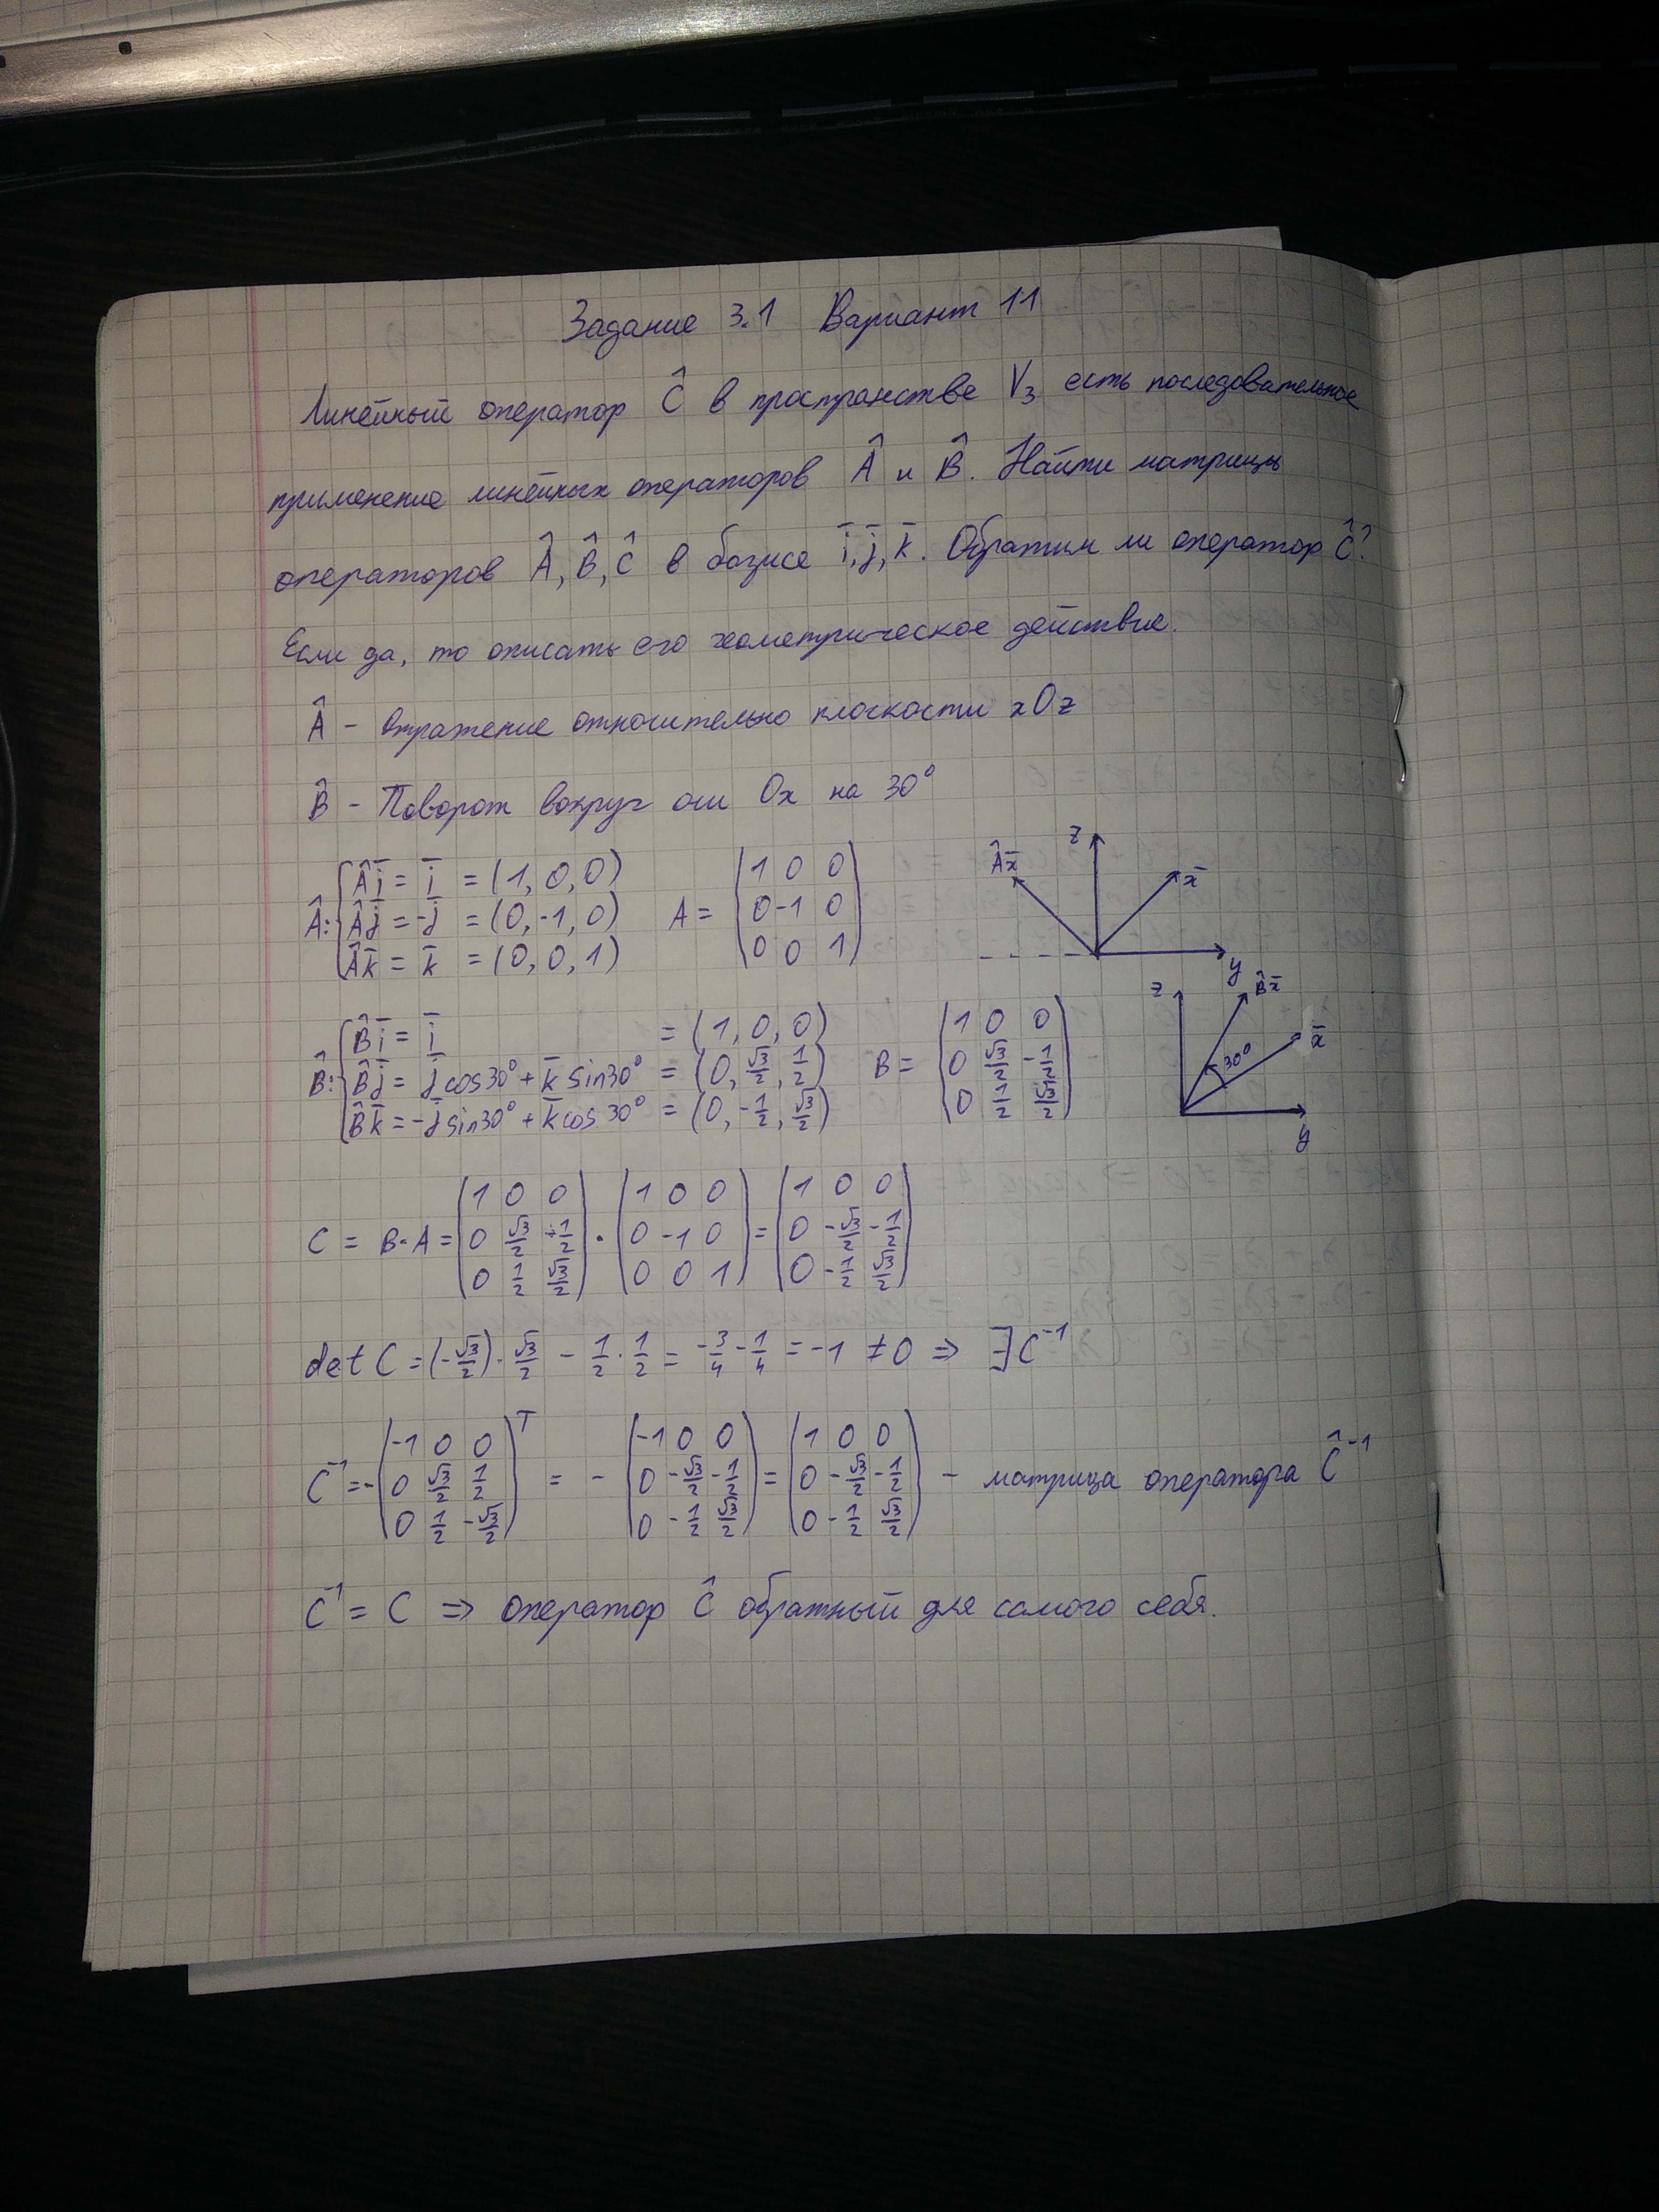 Задание 3.1 Вариант 11
Линейный оператор Ĉ в пространстве V₃ есть последовательное
применение линейных операторов Â и B̂. Найти матрицы
операторов Â, B̂, Ĉ в базисе i̅, j̅, k̅. Обратим ли оператор Ĉ?
Если да, то описать его геометрическое действие.
Â - Отражение относительно плоскости xOz
B̂ - Поворот вокруг оси Ox на 30°
Â: { Âi̅ = i̅ = (1, 0, 0)
Âj̅ = -j̅ = (0, -1, 0)
Âk̅ = k̅ = (0, 0, 1)
A = (1 0 0
0 -1 0
0 0 1)
z Âx̅ x̅ y
B̂: { B̂i̅ = i̅ = (1, 0, 0)
B̂j̅ = j̅ cos30° + k̅ sin30° = (0, √3/2, 1/2)
B̂k̅ = -j̅ sin30° + k̅ cos30° = (0, -1/2, √3/2)
B = (1 0 0
0 √3/2 -1/2
0 1/2 √3/2)
z B̂x̅ x̅ 30° y
C = B·A = (1 0 0
0 √3/2 -1/2
0 1/2 √3/2) · (1 0 0
0 -1 0
0 0 1) = (1 0 0
0 -√3/2 -1/2
0 -1/2 √3/2)
det C = (-√3/2) · √3/2 - 1/2 · 1/2 = -3/4 - 1/4 = -1 ≠ 0 ⇒ ∃ C⁻¹
C⁻¹ = -(-1 0 0
0 √3/2 1/2
0 1/2 -√3/2)ᵀ = -(-1 0 0
0 -√3/2 -1/2
0 -1/2 √3/2) = (1 0 0
0 -√3/2 -1/2
0 -1/2 √3/2) - матрица оператора Ĉ⁻¹
C⁻¹ = C ⇒ оператор Ĉ обратный для самого себя.